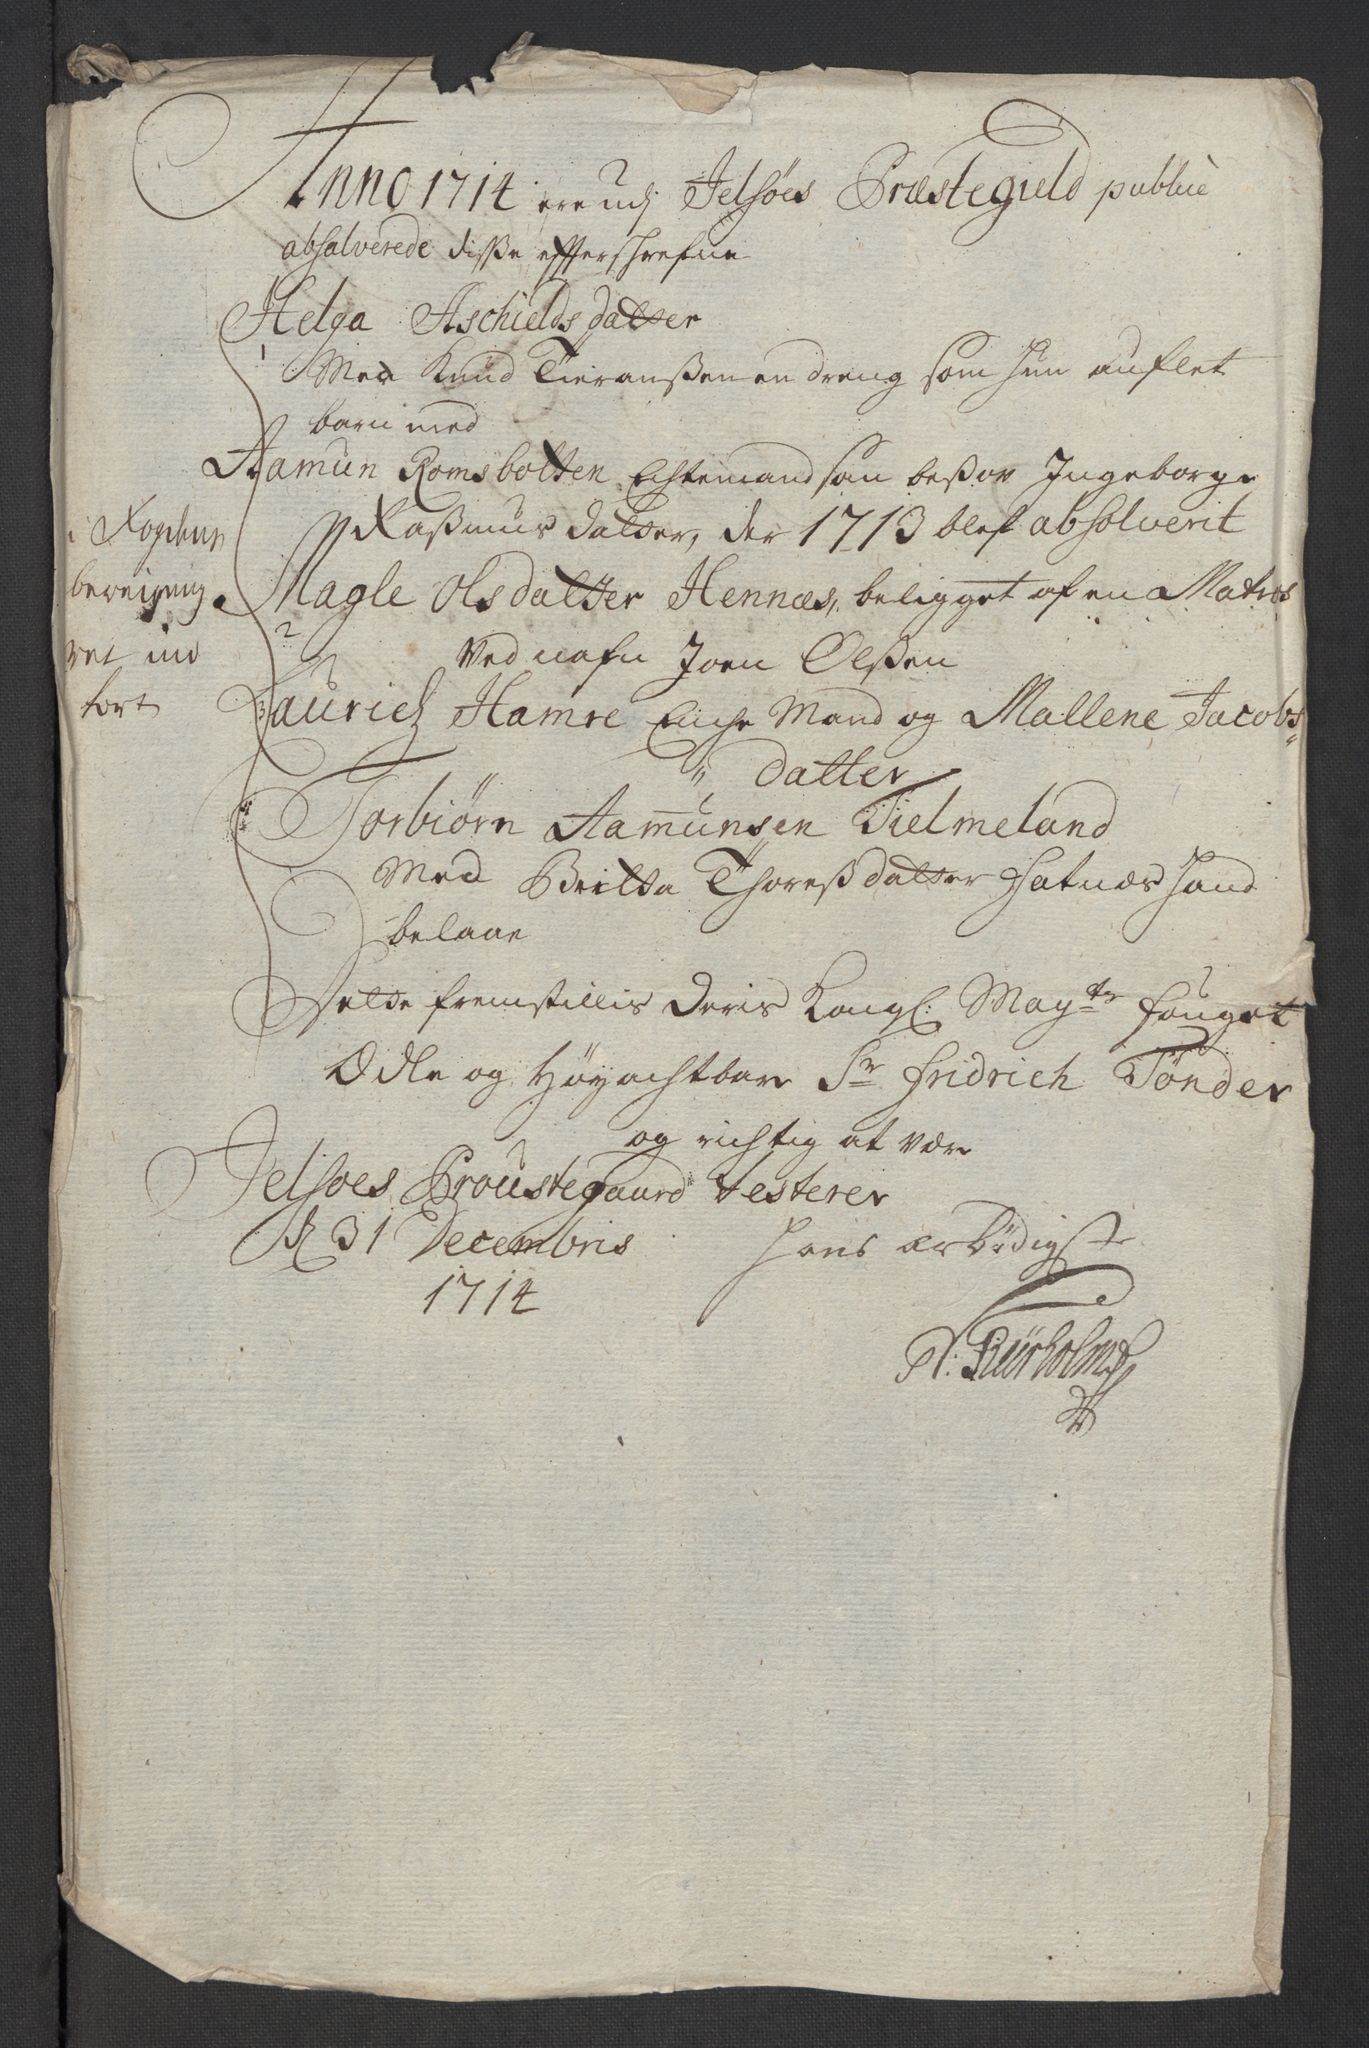 Anno 1714 ere udj Jelsøes Præstegield publicè
absolverede disse effterschrefne
Helga Aschieldsdatter
1 Med Knud Tieranßen en dreng som hun auflet
barn med
Aamun Romsbotten Echtemand saa besov Ingeborge
Raßmusdatter, der 1713 blef absolverit
Magle Olsdatter Hennæs, beligget af en Matros
2
ved nafn Joen Olßen
3 Laurich Hamre Mand og Mallene Jacobs„
„datter
4 Torbiørn Aamunsen Tielmeland
Med Britta Thoreßdatter Hatnæs hand
belaae
Dette fremstillis Deris Kongl: Mayts fouget
Edle og Høyachtbare Sr Fridrich Tønder
og richtig at være
Jelsoes Proustegaard testerer
d 31 Decembris
1714
Hans ærbødigste
i
ret ind
ført